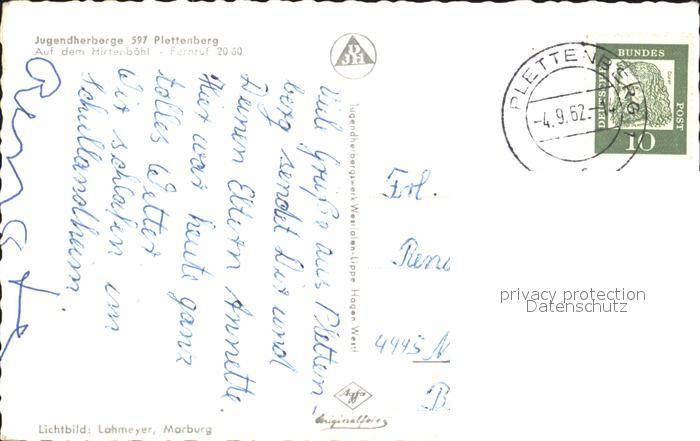 Jugendherberge 597 Plettenberg
Auf dem Hirtenböhl - Fernruf 20 60
DJH
Viele Grüße aus Pletten-
berg sendet Dir und
Deinen Eltern Annette.
Hier war heute ganz
tolles Wetter
Wir schlafen im
Schullandheim
Renate
Jugendherbergswerk Westfalen-Lippe, Hagen Westf
Lichtbild: Lohmeyer, Marburg
Agfa
Originalfoto
PLETTENBERG
-4.9.62.
BUNDES
POST
DEUTSCHE
10
Frl.
Rena
4445 N
privacy protection
Datenschutz